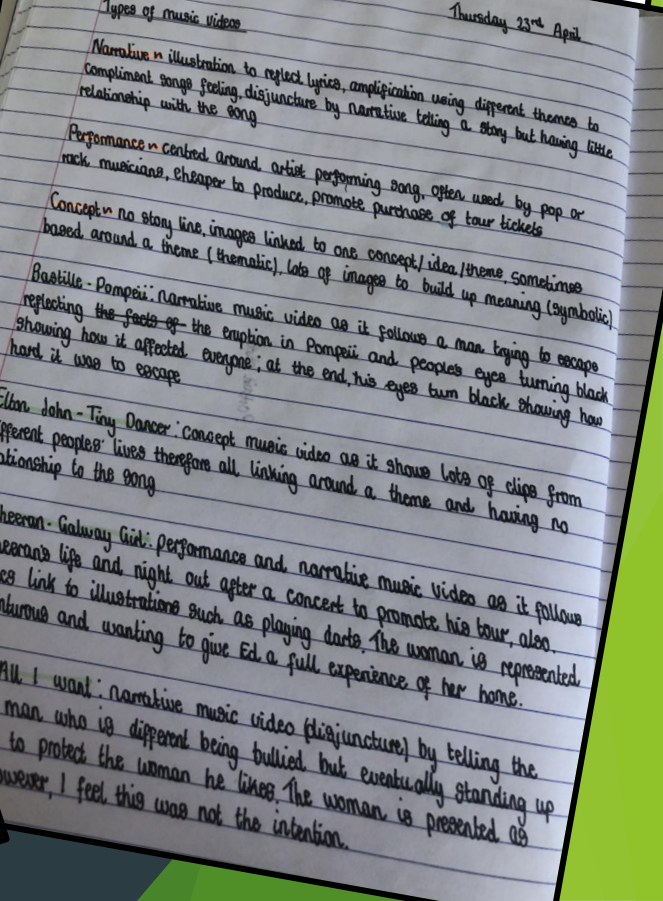 Types of music videos
Thursday 23rd April
Narrative ~ illustration to reflect lyrics, amplification using different themes to
compliment songs feeling, disjuncture by narrative telling a story but having little
relationship with the song
Performance ~ centred around artist performing song, often used by pop or
rock musicians, cheaper to produce, promote purchase of tour tickets
Concept ~ no story line, images linked to one concept/idea/theme, sometimes
based around a theme (thematic), lots of images to build up meaning (symbolic)
Bastille - Pompeii: narrative music video as it follows a man trying to escape
reflecting the facts of the eruption in Pompeii and people's eyes turning black
showing how it affected everyone; at the end, his eyes turn black showing how
hard it was to escape
Elton John - Tiny Dancer: concept music video as it shows lots of clips from
fferent peoples' lives therefore all linking around a theme and having no
ationship to the song
heeran - Galway Girl: performance and narrative music video as it follows
heeran's life and night out after a concert to promote his tour, also.
cs link to illustrations such as playing darts. The woman is represented
nturous and wanting to give Ed a full experience of her home.
All I want: narrative music video (disjuncture) by telling the
man who is different being bullied but eventually standing up
to protect the woman he likes. The woman is presented as
owever, I feel this was not the intention.